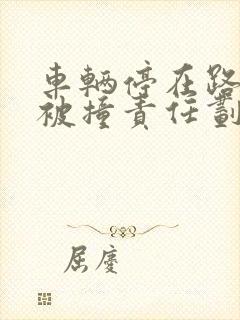 車輛停在路
被撞責任劃
屈慶